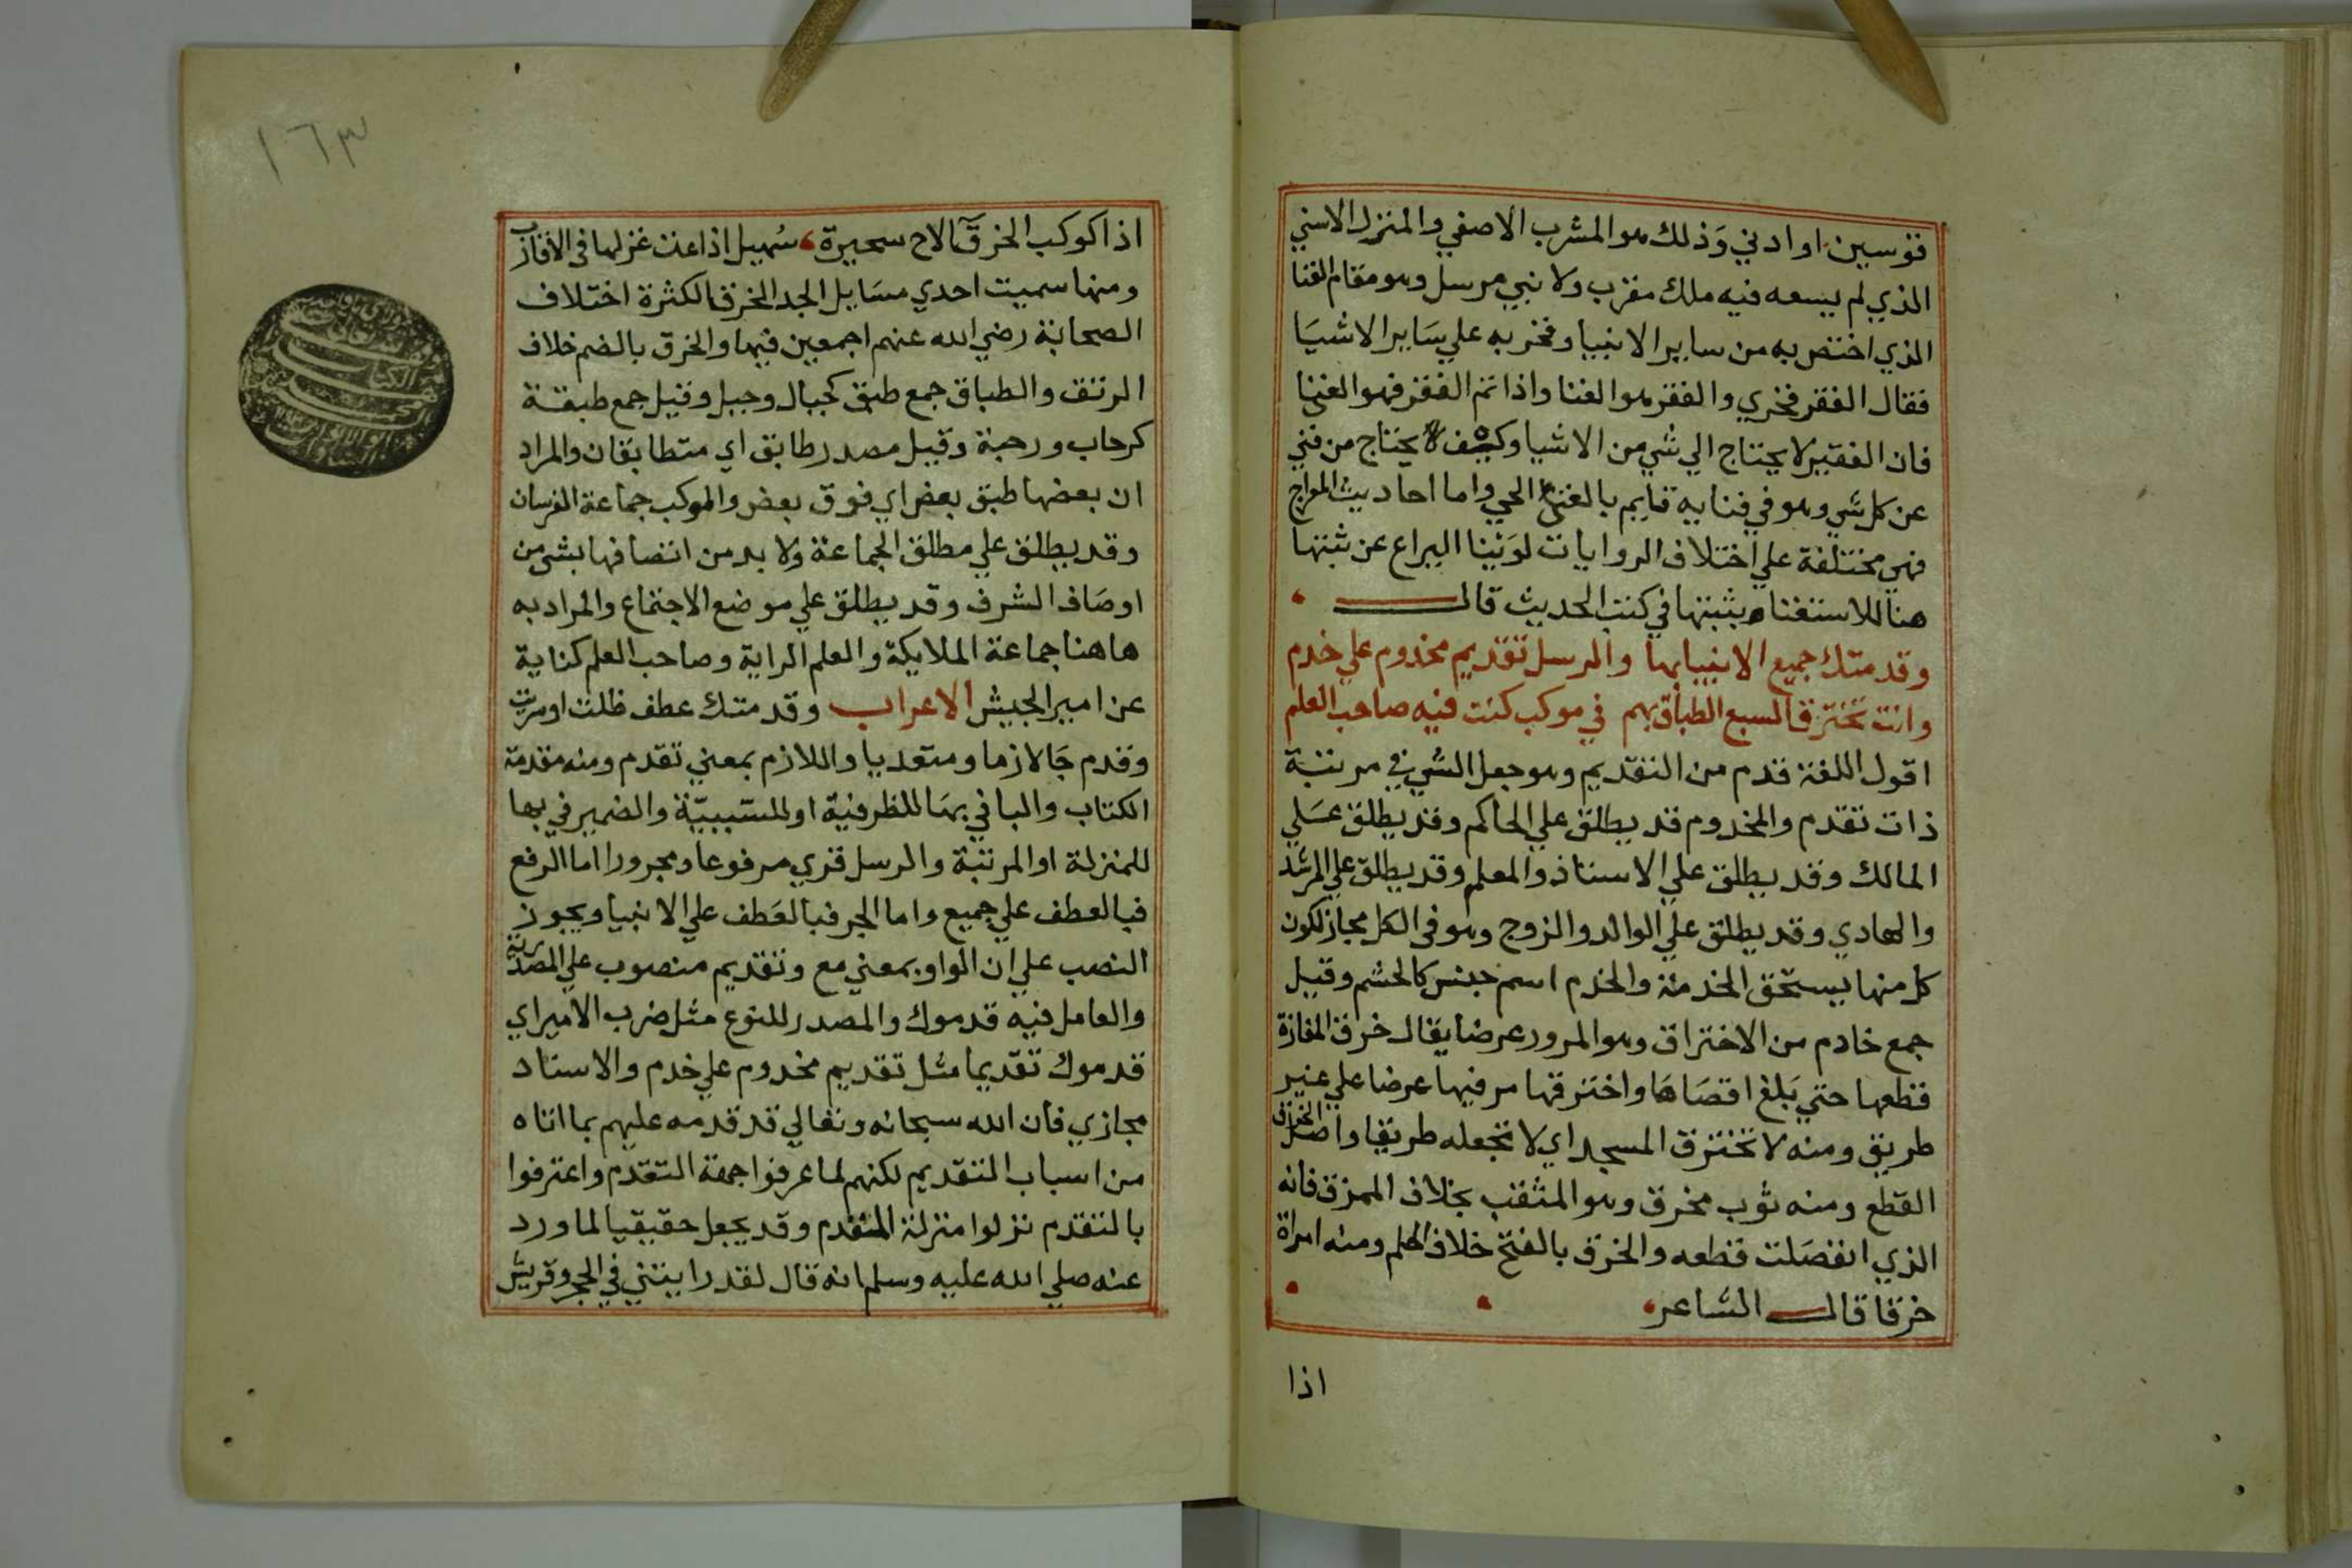 قوسين او ادني وذلك هو المشرب الاصفي والمنزل الاسني
الذي لم يسعه فيه ملك مقرب ولا نبي مرسل وهو مقام الفنا
الذي اختص به من ساير الانبيا وفخر به علي ساير الاشيا
فقال الفقر فخري والفقر هو الفنا واذا تم الفقر فهو الغنا
فان الفقير لا يحتاج الي شي من الاشيا وكيف لا يحتاج من فني
عن كل شي وهو في فنايه قايم بالغني الحي واما احاديث المعراج
فهي مختلفة علي اختلاف الروايات لوينا اليراع عن ثبتها
هنا للاستغناء بثبتها في كتب الحديث قال
وقدمتك جميع الانبيا بها والرسل تقديم مخدوم علي خدم
وانت تخترق السبع الطباق بهم في موكب كنت فيه صاحب العلم
اقول اللغة قدم من التقديم وهو جعل الشي في مرتبة
ذات تقدم والمخدوم قد يطلق علي الحاكم وقد يطلق علي
المالك وقد يطلق علي الاستاذ والمعلم وقد يطلق علي المرشد
والهادي وقد يطلق علي الوالد والزوج وهو في الكل مجاز لكون
كل منها يستحق الخدمة والخدم اسم جنس كالحشم وقيل
جمع خادم من الاختراق وهو المرور عرضا يقال خرق المفازة
قطعها حتي بلغ اقصاها واخترقها مر فيها عرضا علي غير
طريق ومنه لا تخترق المسجد اي لا تجعله طريقا واصل الخرق
القطع ومنه ثوب مخرق وهو المثقب بخلاف الممزق فانه
الذي انفصلت قطعه والخرق بالفتح خلاف الحلم ومنه امراة
خرقا قال الشاعر
اذا
١٦٣
اذا كوكب الخرقآ لاح سحيرة سهيل اذاعت غزلها في الاقارب
ومنها سميت احدي مسايل الجد الخرقا لكثرة اختلاف
الصحابة رضي الله عنهم اجمعين فيها والخرق بالضم خلاف
الرتق والطباق جمع طبق كجبال وجبل وقيل جمع طبقة
كرحاب ورحبة وقيل مصدر طابق اي متطابقان والمراد
ان بعضها طبق بعض اي فوق بعض والموكب جماعة الفرسان
وقد يطلق علي مطلق الجماعة ولا بد من اتصافها بشي من
اوصاف الشرف وقد يطلق علي موضع الاجتماع والمراد به
هاهنا جماعة الملايكة والعلم الراية وصاحب العلم كناية
عن امير الجيش الاعراب وقدمتك عطف ظلت او سريت
وقدم جا لازما ومتعديا واللازم بمعني تقدم ومنه مقدمة
الكتاب والبا في بها للظرفية او للسببية والضمير في بها
للمنزلة او المرتبة والرسل قري مرفوعا ومجرورا اما الرفع
فبالعطف علي جميع واما الجر فبالعطف علي الانبيا ويجوز
النصب علي ان الواو بمعني مع وتقديم منصوب علي المصدرية
والعامل فيه قدموك والمصدر للنوع مثل ضرب الامير اي
قدموك تقديما مثل تقديم مخدوم علي خدم والاسناد
مجازي فان الله سبحانه وتعالي قد قدمه عليهم بما اتاه
من اسباب التقديم لكنهم لما عرفوا جهة التقدم واعترفوا
بالتقدم نزلوا منزلة المتقدم وقد يجعل حقيقيا لما ورد
عنه صلي الله عليه وسلم انه قال لقد رايتني في الحجر وقريش